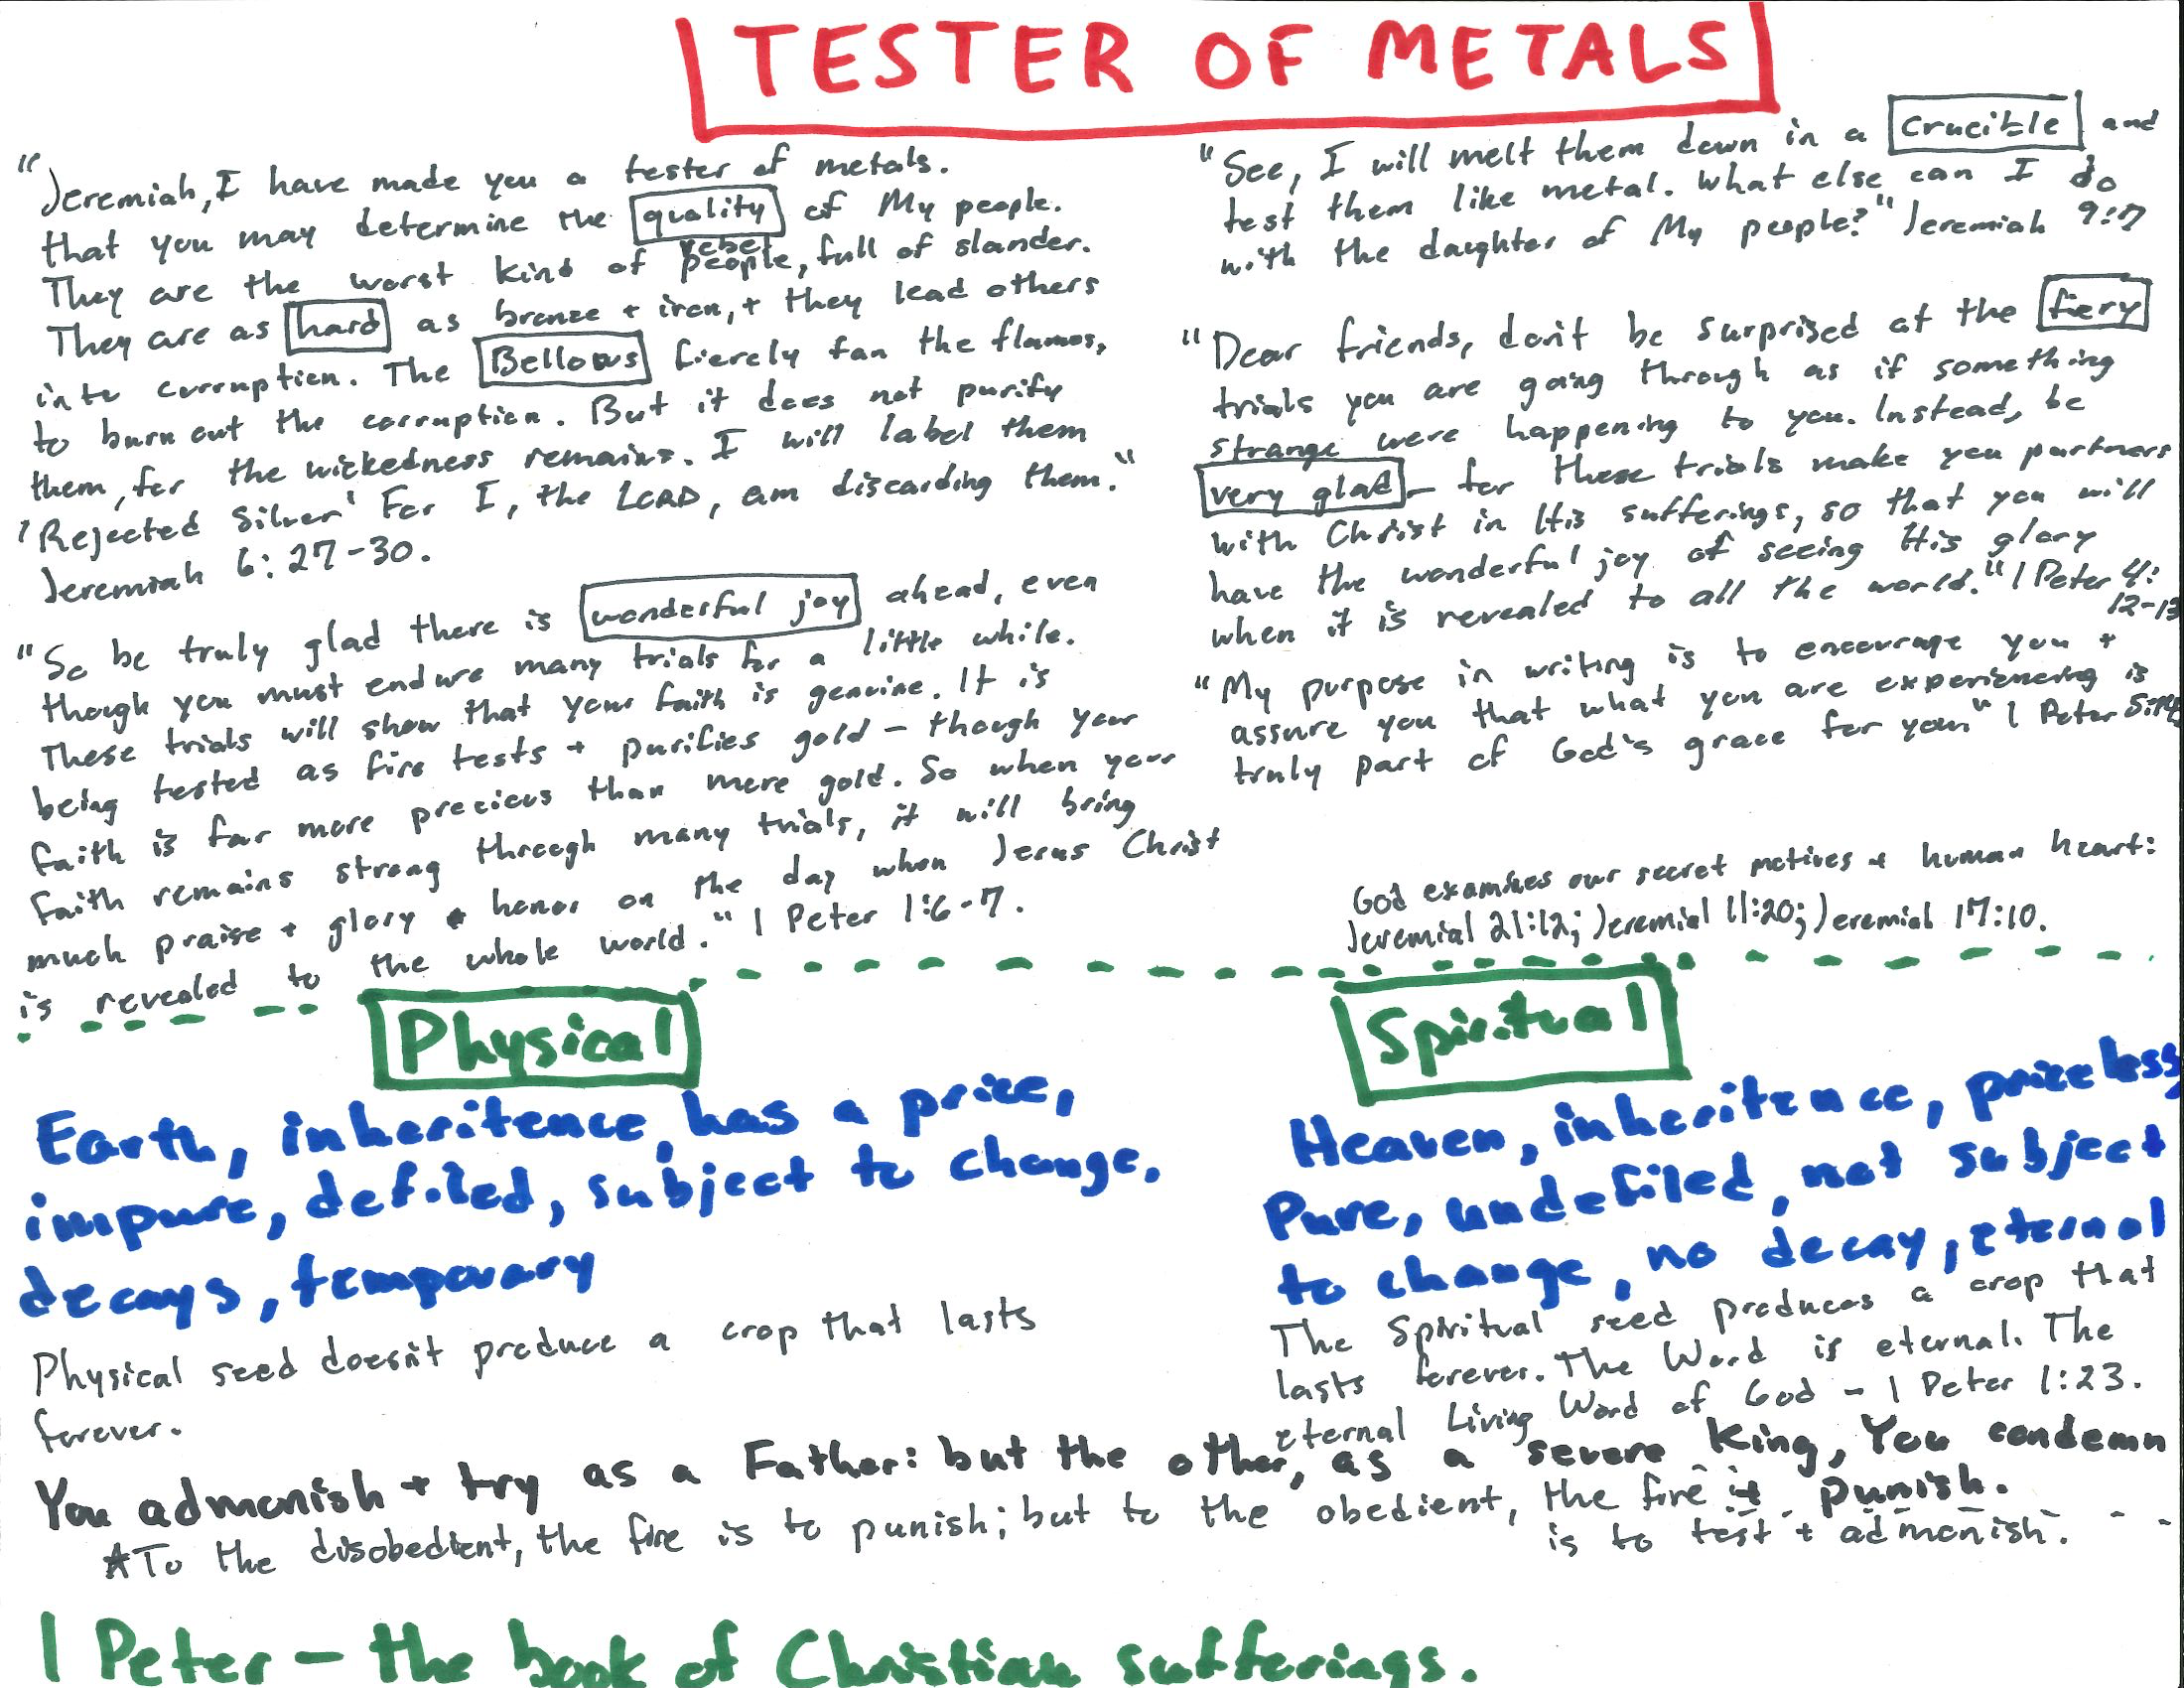 TESTER OF METALS
"Jeremiah, I have made you a tester of metals.
that you may determine the quality of My people.
They are the worst kind of people, full of slander.
rebel
They are as hard as bronze + iron, + they lead others
into corruption. The Bellows fierely fan the flames,
to burn out the corruption. But it does not purify
them, for the wickedness remains. I will label them
'Rejected Silver' For I, the LORD, am discarding them."
Jeremiah 6:27-30.
"So be truly glad there is wonderful joy ahead, even
though you must endure many trials for a little while.
These trials will show that your faith is genuine. It is
being tested as fire tests + purifies gold - though your
faith is far more precious than mere gold. So when your
faith remains strong through many trials, it will bring
much praise + glory + honor on the day when Jesus Christ
is revealed to the whole world." 1 Peter 1:6-7.
"See, I will melt them down in a crucible and
test them like metal. What else can I do
with the daughter of My people?" Jeremiah 9:7
"Dear friends, don't be surprised at the fiery
trials you are going through as if something
strange were happening to you. Instead, be
very glad - for these trials make you partners
with Christ in His sufferings, so that you will
have the wonderful joy of seeing His glory
when it is revealed to all the world." 1 Peter 4:
12-13
"My purpose in writing is to encourage you +
assure you that what you are experiencing is
truly part of God's grace for you" 1 Peter 5:12
God examines our secret motives + human heart:
Jeremial 21:12; Jeremial 11:20; Jeremial 17:10.
Physical
Earth, inheritence, has a price,
impure, defiled, subject to change,
decays, temporary
Physical seed doesn't produce a crop that lasts
forever.
Spiritual
Heaven, inheritence, priceless
Pure, undefiled, not subject
to change, no decay, eternal
The Spiritual seed produces a crop that
lasts forever. The Word is eternal. The
eternal Living Word of God - 1 Peter 1:23.
You admonish + try as a Father: but the other, as a severe King, You condemn
+ punish.
*To the disobedient, the fire is to punish; but to the obedient, the fire
is to test + admonish.
1 Peter - the book of Christian sufferings.